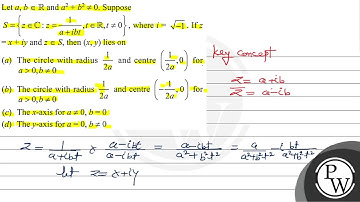 Let a, b ∈ ℝ and a² + b² ≠ 0. Suppose
S = {z ∈ ℂ : z = 1/(a+ibt), t ∈ ℝ, t ≠ 0}, where i = √-1. If z
= x + iy and z ∈ S, then (x, y) lies on
(a) The circle with radius 1/2a and centre (1/2a, 0) for
a > 0, b ≠ 0
(b) The circle with radius 1/2a and centre (-1/2a, 0) for
a > 0, b ≠ 0
(c) The x-axis for a ≠ 0, b = 0
(d) The y-axis for a = 0, b ≠ 0
Key concept
z = a+ib
z̅ = a-ib
z = 1/(a+ibt) × (a-ibt)/(a-ibt) = (a-ibt)/(a²+b²t²) = a/(a²+b²t²) - i bt/(a²+b²t²)
let z = x+iy
P
W